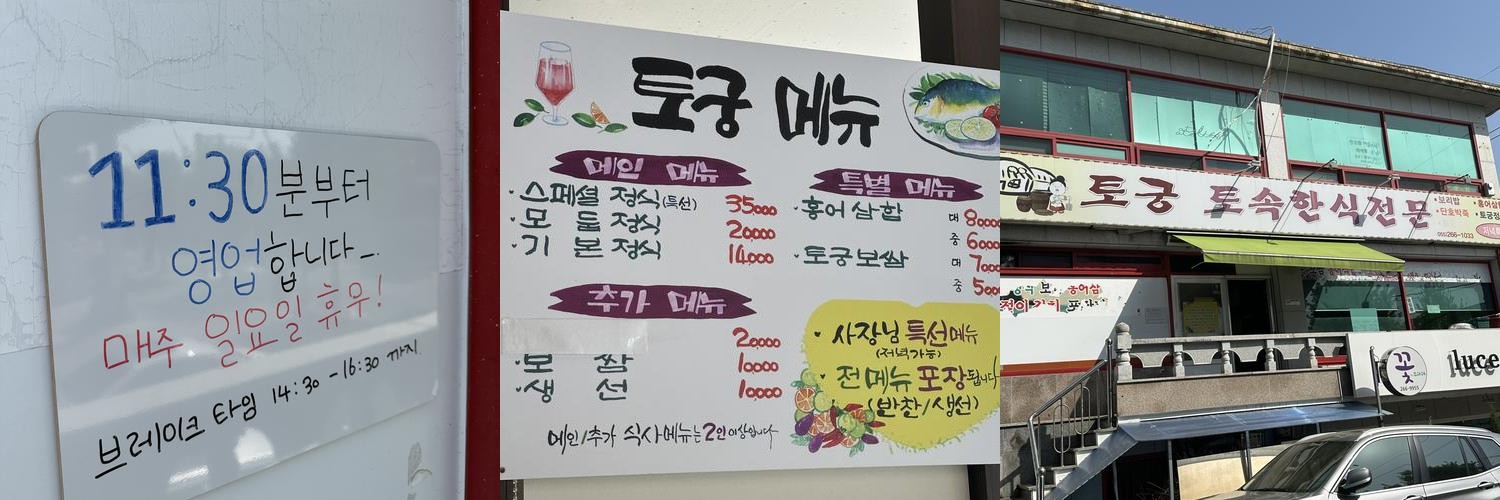 11:30분부터
영업합니다_.
매주 일요일 휴무!
브레이크 타임 14:30 - 16:30 까지.
토궁 메뉴
메인 메뉴
· 스페셜 정식(특선) 35,000
· 모 듬 정식 20,000
· 기 본 정식 14,000
추가 메뉴
20,000
· 보 쌈 10,000
· 생 선 10,000
메인/추가 식사메뉴는 2인이상입니다
특별 메뉴
· 홍어 삼합 대
중
· 토궁보쌈 대
중
· 사장님 특선메뉴
(저녁가능)
· 전메뉴 포장됩니다
(반찬/생선)
토궁 토속한식전문
· 보리밥
· 단호박죽
055)266-1033
꽃
266-9955
luce